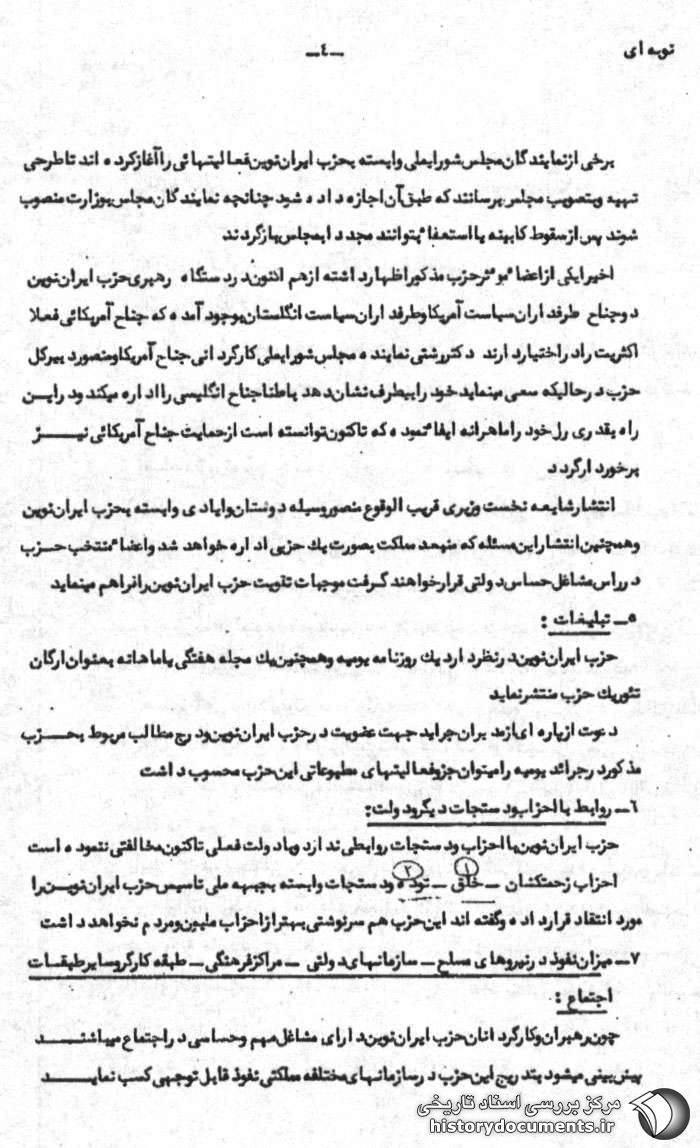 نوبه ای
ـ٤ـ
برخی از نمایندگان مجلس شورایملی وابسته بحزب ایران نوین فعالیتهائی را آغاز کرده اند تا طرحی
تهیه و بتصویب مجلس برسانند که طبق آن اجازه داده شود چنانچه نمایندگان مجلس بوزارت منصوب
شوند پس از سقوط کابینه یا استعفا بتوانند مجددا بمجلس بازگردند
اخیرا یکی از اعضا موثر حزب مذکور اظهار داشته از هم اکنون در دستگاه رهبری حزب ایران نوین
دو جناح طرفداران سیاست آمریکا و طرفداران سیاست انگلستان بوجود آمده که جناح آمریکائی فعلا
اکثریت را در اختیار دارند دکتر رشتی نماینده مجلس شورایملی کارگردانی جناح آمریکا و منصور دبیرکل
حزب در حالیکه سعی مینماید خود را بیطرف نشان دهد باطنا جناح انگلیسی را اداره میکند و در این
راه بقدری رل خود را ماهرانه ایفا نموده که تاکنون توانسته است از حمایت جناح آمریکائی نیـــز
برخوردار گردد
انتشار شایعه نخست وزیری قریب الوقوع منصور وسیله دوستان و ایادی وابسته بحزب ایران نوین
و همچنین انتشار این مسئله که منبعد مملکت بصورت یك حزبی اداره خواهد شد و اعضا منتخب حـزب
در راس مشاغل حساس دولتی قرار خواهند گرفت موجبات تقویت حزب ایران نوین را فراهم مینماید
٥ـ تبلیغات :
حزب ایران نوین در نظر دارد یك روزنامه یومیه و همچنین یك مجله هفتگی یا ماهانه بعنوان ارگان
تئوریك حزب منتشر نماید
دعوت از پاره ای از مدیران جراید جهت عضویت در حزب ایران نوین و درج مطالب مربوط بحـــزب
مذکور در جرائد یومیه را میتوان جزو فعالیتهای مطبوعاتی این حزب محسوب داشت
٦ـ روابط با احزاب و دستجات دیگر و دولت:
حزب ایران نوین با احزاب و دستجات روابطی ندارد و با دولت فعلی تاکنون مخالفتی ننموده است
١ ٢
احزاب زحمتکشان ـ خلق ـ توده و دستجات وابسته بجبهه ملی تاسیس حزب ایران نویـن را
مورد انتقاد قرار داده و گفته اند این حزب هم سرنوشتی بهتر از احزاب ملیون و مردم نخواهد داشت
٧ـ میزان نفوذ در نیروهای مسلح ـ سازمانهای دولتی ـ مراکز فرهنگی ـ طبقه کارگر و سایر طبقـات
اجتماع :
چون رهبران و کارگردانان حزب ایران نوین دارای مشاغل مهم و حساسی در اجتماع میباشنـــد
پیش بینی میشود بتدریج این حزب در سازمانهای مختلفه مملکتی نفوذ قابل توجهی کسب نمایــــد
مرکز بررسی اسناد تاریخی
historydocuments.ir